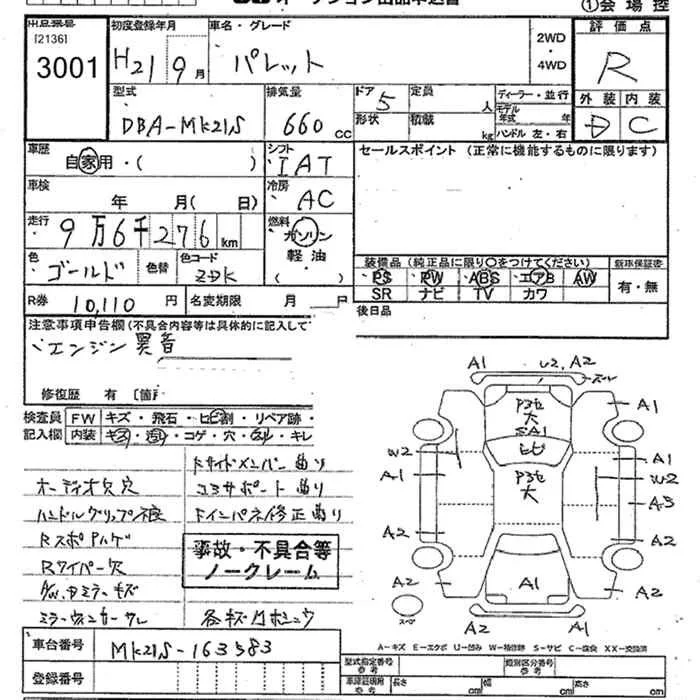 オークション出品申込書
①会場控
出品番号
[2136]
3001
初度登録年月
H21 9月
車名・グレード
パレット
2WD
・
4WD
評価点
R
外装 内装
D C
型式
DBA-MK21S
排気量
660 cc
ドア
5
形状
定員
人
積載
kg
ディーラー・並行
モデル年式 年
ハンドル 左・右
車歴
自家用・( )
シフト
IAT
セールスポイント (正常に機能するものに限ります)
車検
年 月( 日)
冷房
AC
走行
9万6千276km
燃料
ガソリン
軽油
( )
色
ゴールド
色替
色コード
ZDK
装備品(純正品に限り○をつけてください)
PS PW ABS エアB AW
SR ナビ TV カワ
新車保証書
有・無
R券 10,110 円
名変期限 月
後日品
注意事項申告欄(不具合内容等は具体的に記入して
、エンジン異音
修復歴 有 〔箇
検査員
記入欄
FW キズ・飛石・ヒビ割・リペア跡・
内装 キズ・汚れ・コゲ・穴・
・キレ
オーディオ欠穴
Rスポハゲ
Rワイパー欠
Rサイドメンバー曲り
コアサポート曲り
Fインパネ修正曲り
事故・不具合等
ノークレーム
A1 U2, A2
A1
P3セ
大
A1
ヒビ
W2
A1
P3セ
大
A1
W2
A3
A2
A2
A2
A1
A2
スペア
A2 A1
A-キズ E-エクボ U-凹み W-補修跡 S-サビ C-腐食 XX-交換済
車台番号
MK21S-163583
登録番号
型式指定番号
類別区分番号
車庫証明用
参考
長さ cm 幅 cm 高さ cm